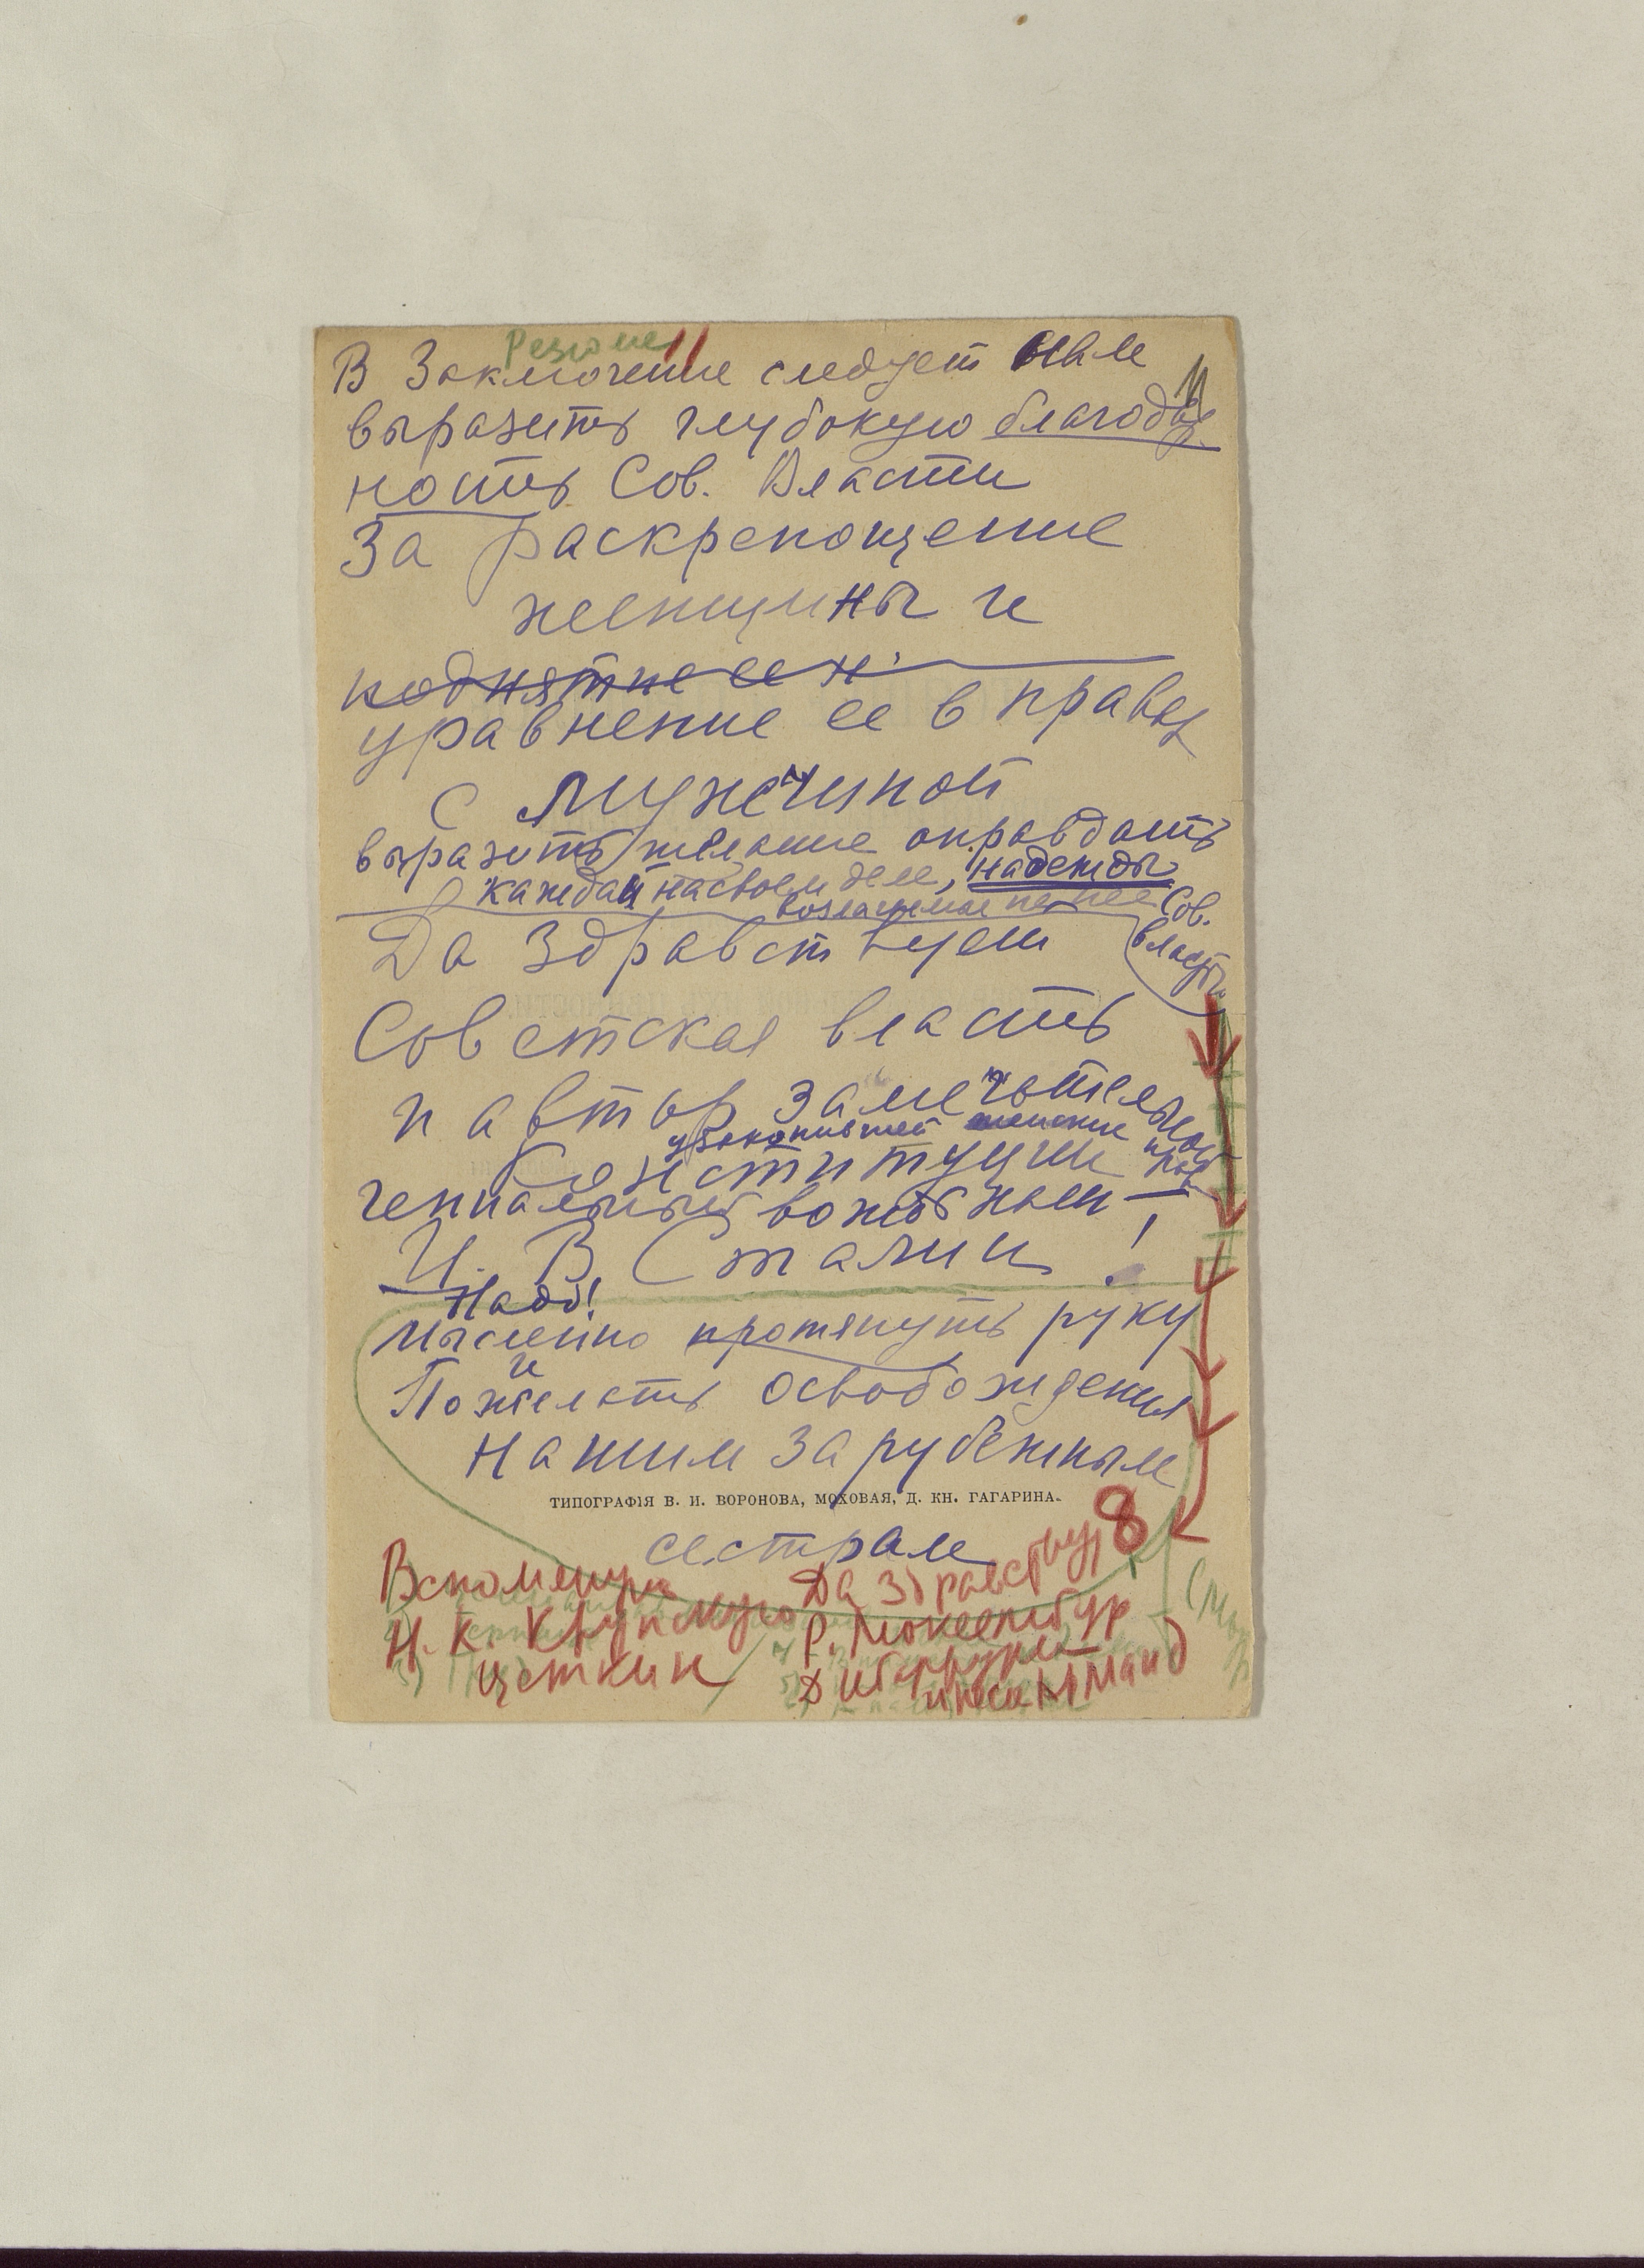 Резюме
11
В Заключение следует нам
выразить глубокую благодар
ность Сов. Власти
За раскрепощение
женщины и
поднятие ее
уравнение ее в правах
с мужчиной
выразить желание оправдать
каждая на своем деле, надежды
возлагаемые на нее Сов.
власти
Да Здравствует
Советская власть
и автор замечательной
узаконившей женские
Конституции
гениальный вождь наш —
И. В Сталин!
Надо!
Мысленно протянуть руку
и
Пожелать освобождения
нашим зарубежным
ТИПОГРАФІЯ В. И. ВОРОНОВА, МОХОВАЯ, Д. КН. ГАГАРИНА.
сестрам
8
Вспомянуть
Н. К. Крупскую
Цеткин
Да здравствует
Р. Люксембург
Д Ибаррури
Инеса Арманд